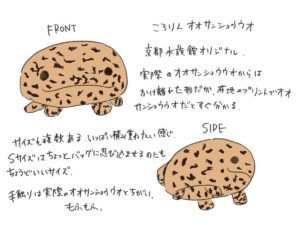 FRONT
ころりん オオサンショウウオ
京都水族館オリジナル.
実際のオオサンショウウオからは
かけ離れた形だが、布地のプリントでオオ
サンショウウオだとすぐ分かる.
サイズも複数ある. いっぱい積み重ねたい感じ.
Sサイズはちょっとバッグに忍び込ませるのにも
ちょうどいいサイズ.
手触りは実際のオオサンショウウオとちがい、
もふもふ.
SIDE